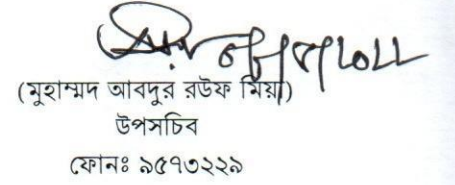 (মুহাম্মদ আবদুর রউফ মিয়া)
উপসচিব
ফোনঃ ৯৫৭৩২২৯